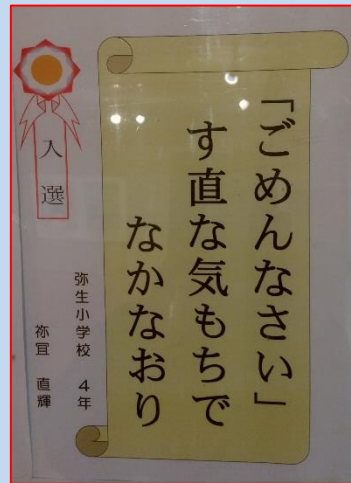 「ごめんなさい」
す直な気もちで
なかなおり
弥生小学校　4年
祢冝　直輝
入選